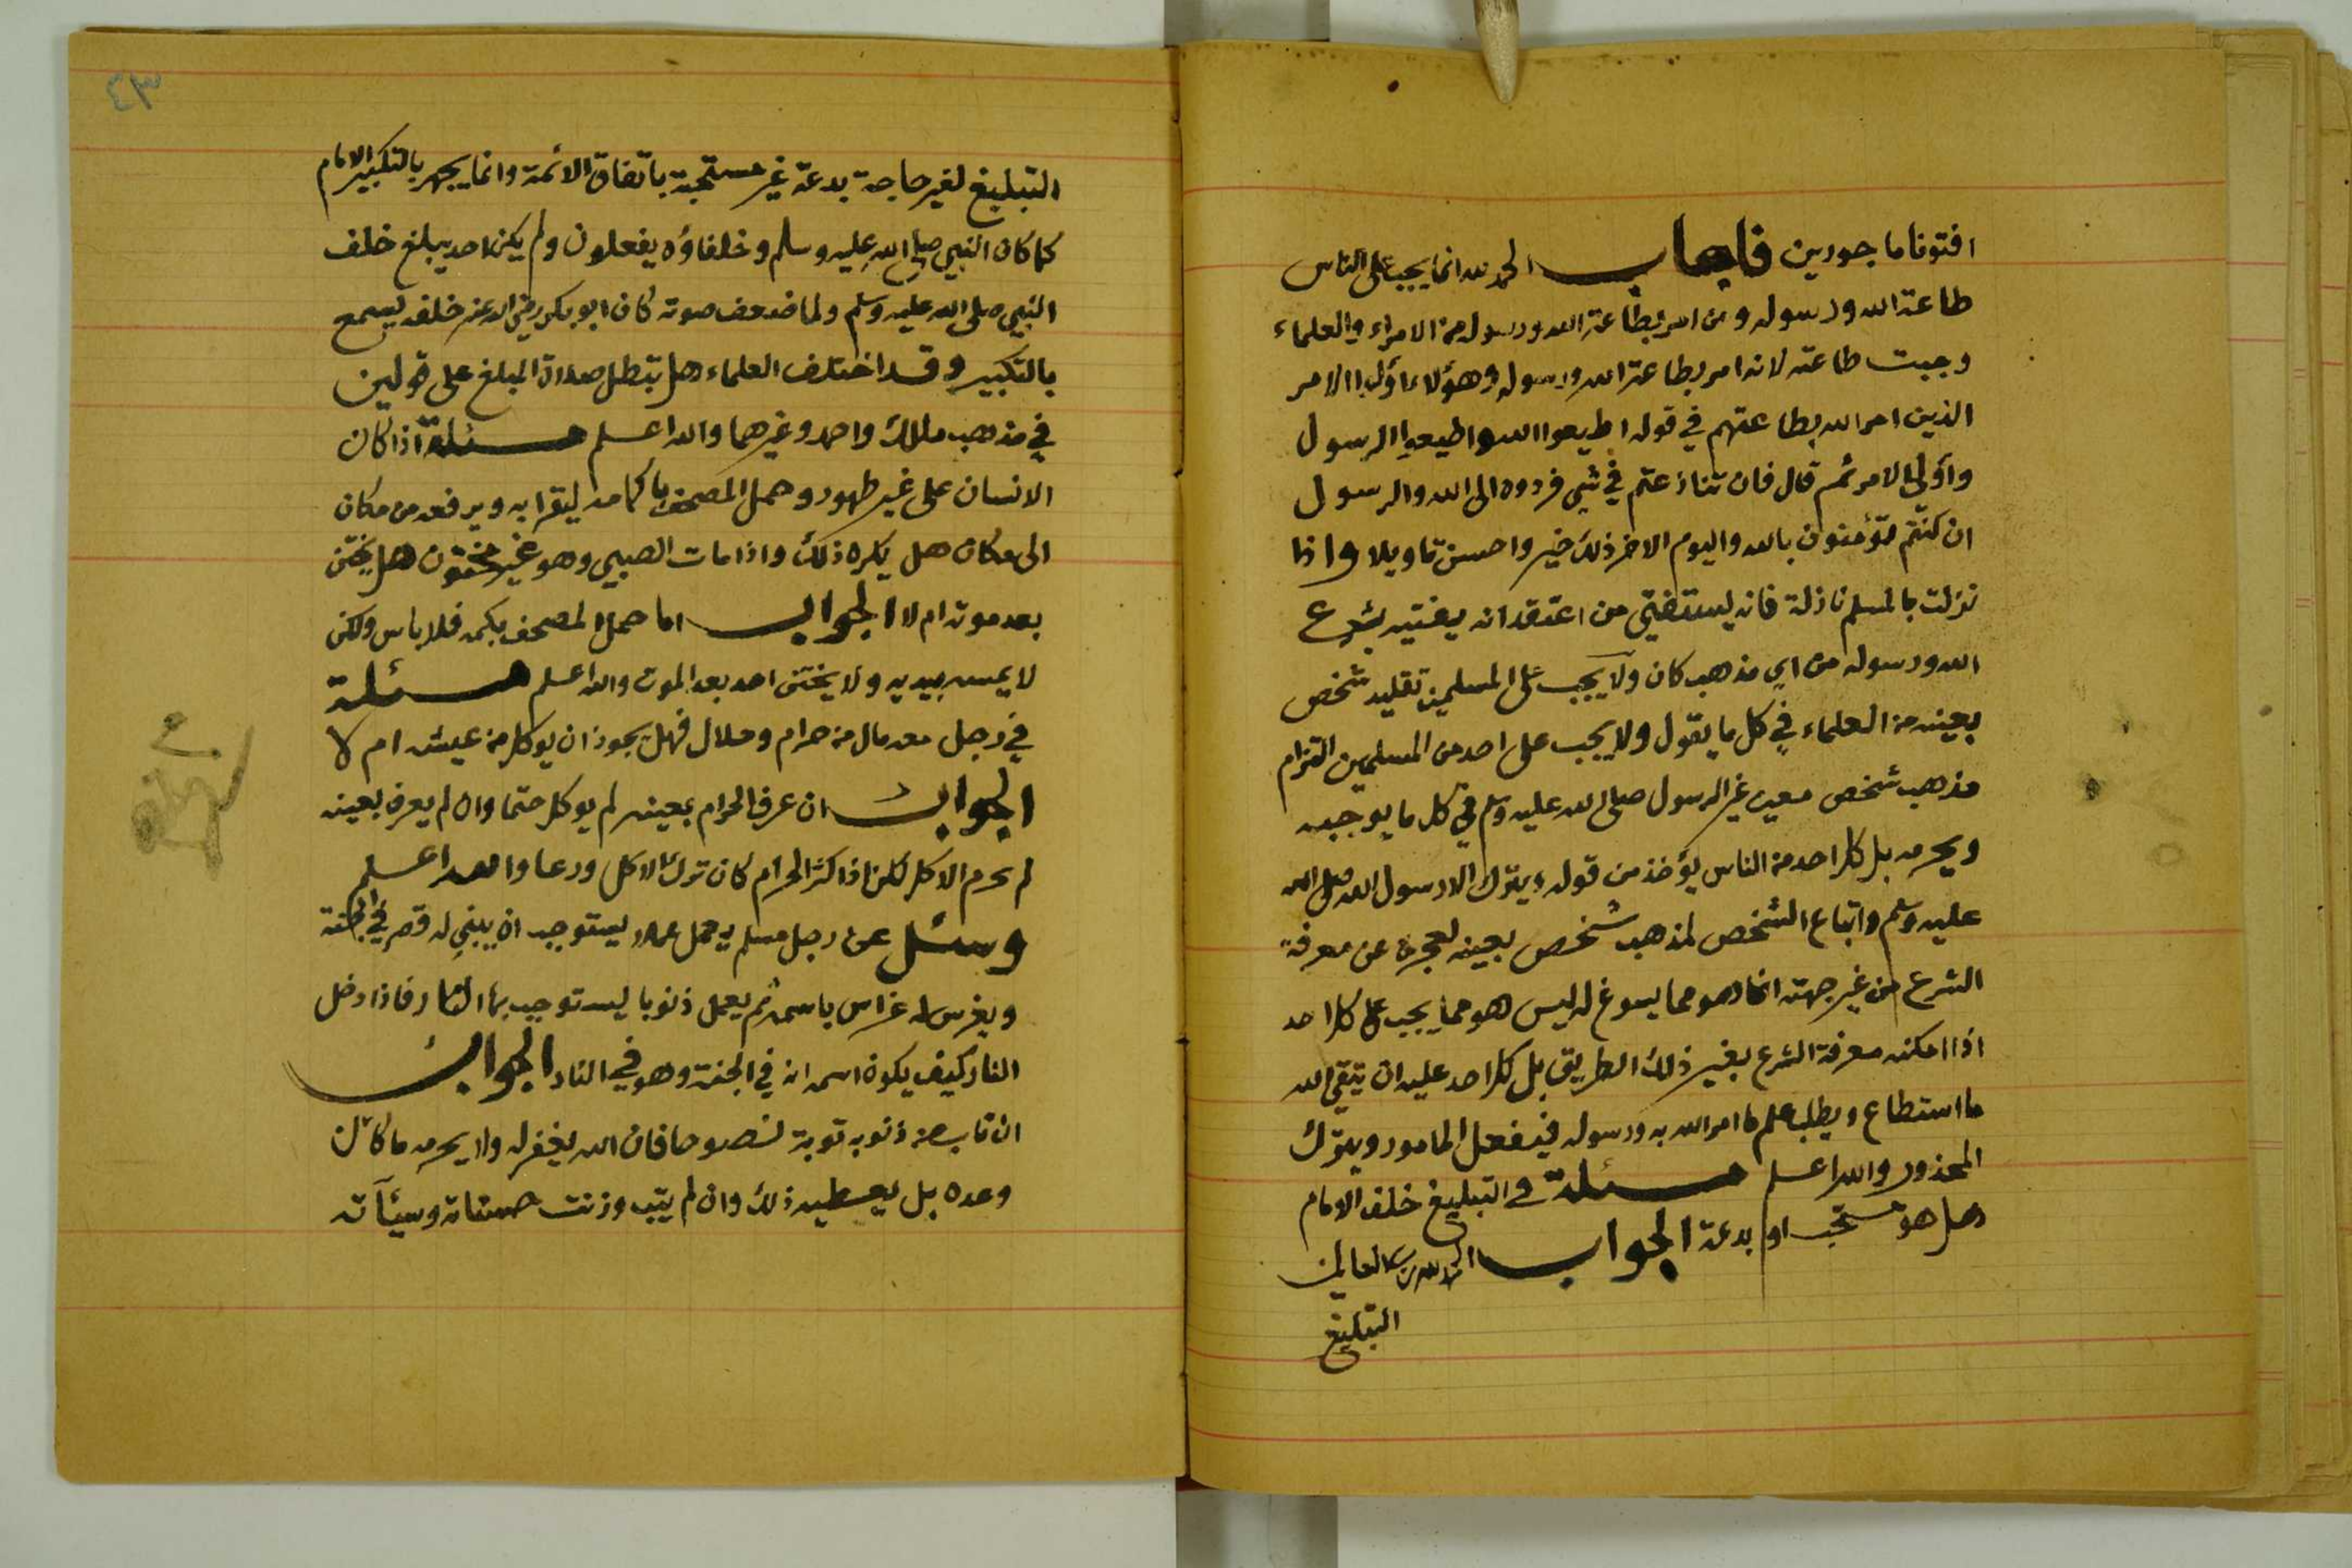 افتونا ماجورين فاجاب الحمد لله انما يجب على الناس
طاعة الله ورسوله ومن امر بطاعة الله ورسوله من الامراء والعلماء
وجبت طاعته لانه امر بطاعة الله ورسوله وهؤلاء اولوا الامر
الذين امر الله بطاعتهم في قوله اطيعوا الله واطيعوا الرسول
واولي الامر ثم قال فان تنازعتم في شي فردوه الى الله والرسول
ان كنتم تؤمنون بالله واليوم الاخر ذلك خير واحسن تاويلا واذا
نزلت بالمسلم نازلة فانه يستفتي من اعتقد انه يفتيه بشرع
الله ورسوله من اي مذهب كان ولا يجب على المسلمين تقليد شخص
بعينه من العلماء في كل ما يقول ولا يجب على احد من المسلمين التزام
مذهب شخص معين غير الرسول صلى الله عليه وسلم في كل ما يوجبه
ويحرمه بل كل احد من الناس يؤخذ من قوله ويترك الا رسول الله صلى الله
عليه وسلم واتباع الشخص لمذهب شخص بعينه لعجزه عن معرفة
الشرع من غير جهته انما هو مما يسوغ له ليس هو مما يجب على كل احد
اذا امكنه معرفة الشرع بغير ذلك الطريق بل كل احد عليه ان يتقي الله
ما استطاع ويطلب علم ما امر الله به ورسوله فيفعل المامور ويترك
المحذور والله اعلم مسئلة في التبليغ خلف الامام
هل هو مستحب او بدعة الجواب الحمد لله رب العالمين
التبليغ
٤٣
التبليغ لغير حاجة بدعة غير مستحبة باتفاق الائمة وانما يجهر بالتكبير الامام
كما كان النبي صلى الله عليه وسلم وخلفاؤه يفعلون ولم يكن احد يبلغ خلف
النبي صلى الله عليه وسلم ولما ضعف صوته كان ابو بكر رضي الله عنه خلفه يسمع
بالتكبير وقد اختلف العلماء هل تبطل صلاة المبلغ على قولين
في مذهب مالك واحمد وغيرهما والله اعلم مسئلة اذا كان
الانسان على غير طهور وحمل المصحف باكمامه ليقرا به ويرفعه من مكان
الى مكان هل يكره ذلك واذا مات الصبي وهو غير مختون هل يختن
بعد موته ام لا الجواب اما حمل المصحف بكمه فلا باس ولكن
لا يمسه بيديه ولا يختن احد بعد الموت والله اعلم مسئلة
في رجل معه مال من حرام وحلال فهل يجوز ان يوكل من عيشه ام لا
الجواب ان عرف الحرام بعينه لم يوكل حتما وان لم يعرف بعينه
لم يحرم الاكل لكن اذا كثر الحرام كان ترك الاكل ورعا والله اعلم
وسئل عن رجل مسلم يعمل عملا يستوجب ان يبني له قصر في الجنة
ويغرس له غراس باسمه ثم يعمل ذنوبا يستوجب بها النار فاذا دخل
النار كيف يكون اسمه انه في الجنة وهو في النار الجواب
ان تاب من ذنوبه توبة نصوحا فان الله يغفر له ولا يحرمه ما كان
وعده بل يعطيه ذلك وان لم يتب وزنت حسناته وسيئآته